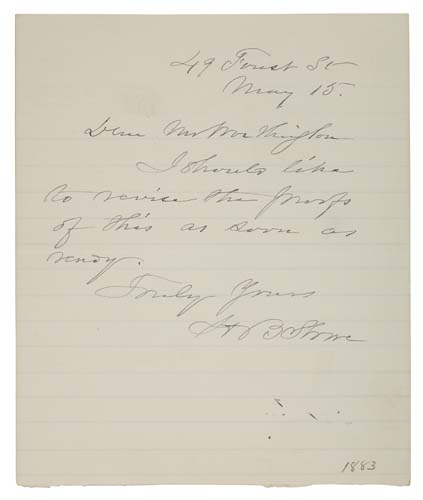 49 Forest St
May 15.
Dear Mr Worthington
I should like
to revise the proofs
of this as soon as
ready.
Truly Yours
H B Stowe
1883